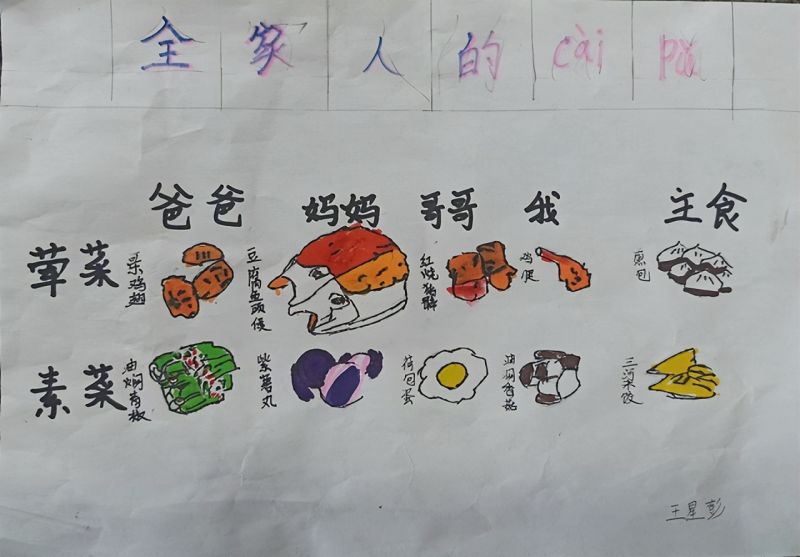 全家人的cài pǔ
爸爸 妈妈 哥哥 我 主食
荤菜 鸡翅 豆腐鱼头煲 红烧猪蹄 鸡腿 蒸包
素菜 油焖青椒 紫薯丸 荷包蛋 油焖香菇 三河米饺
王星彭